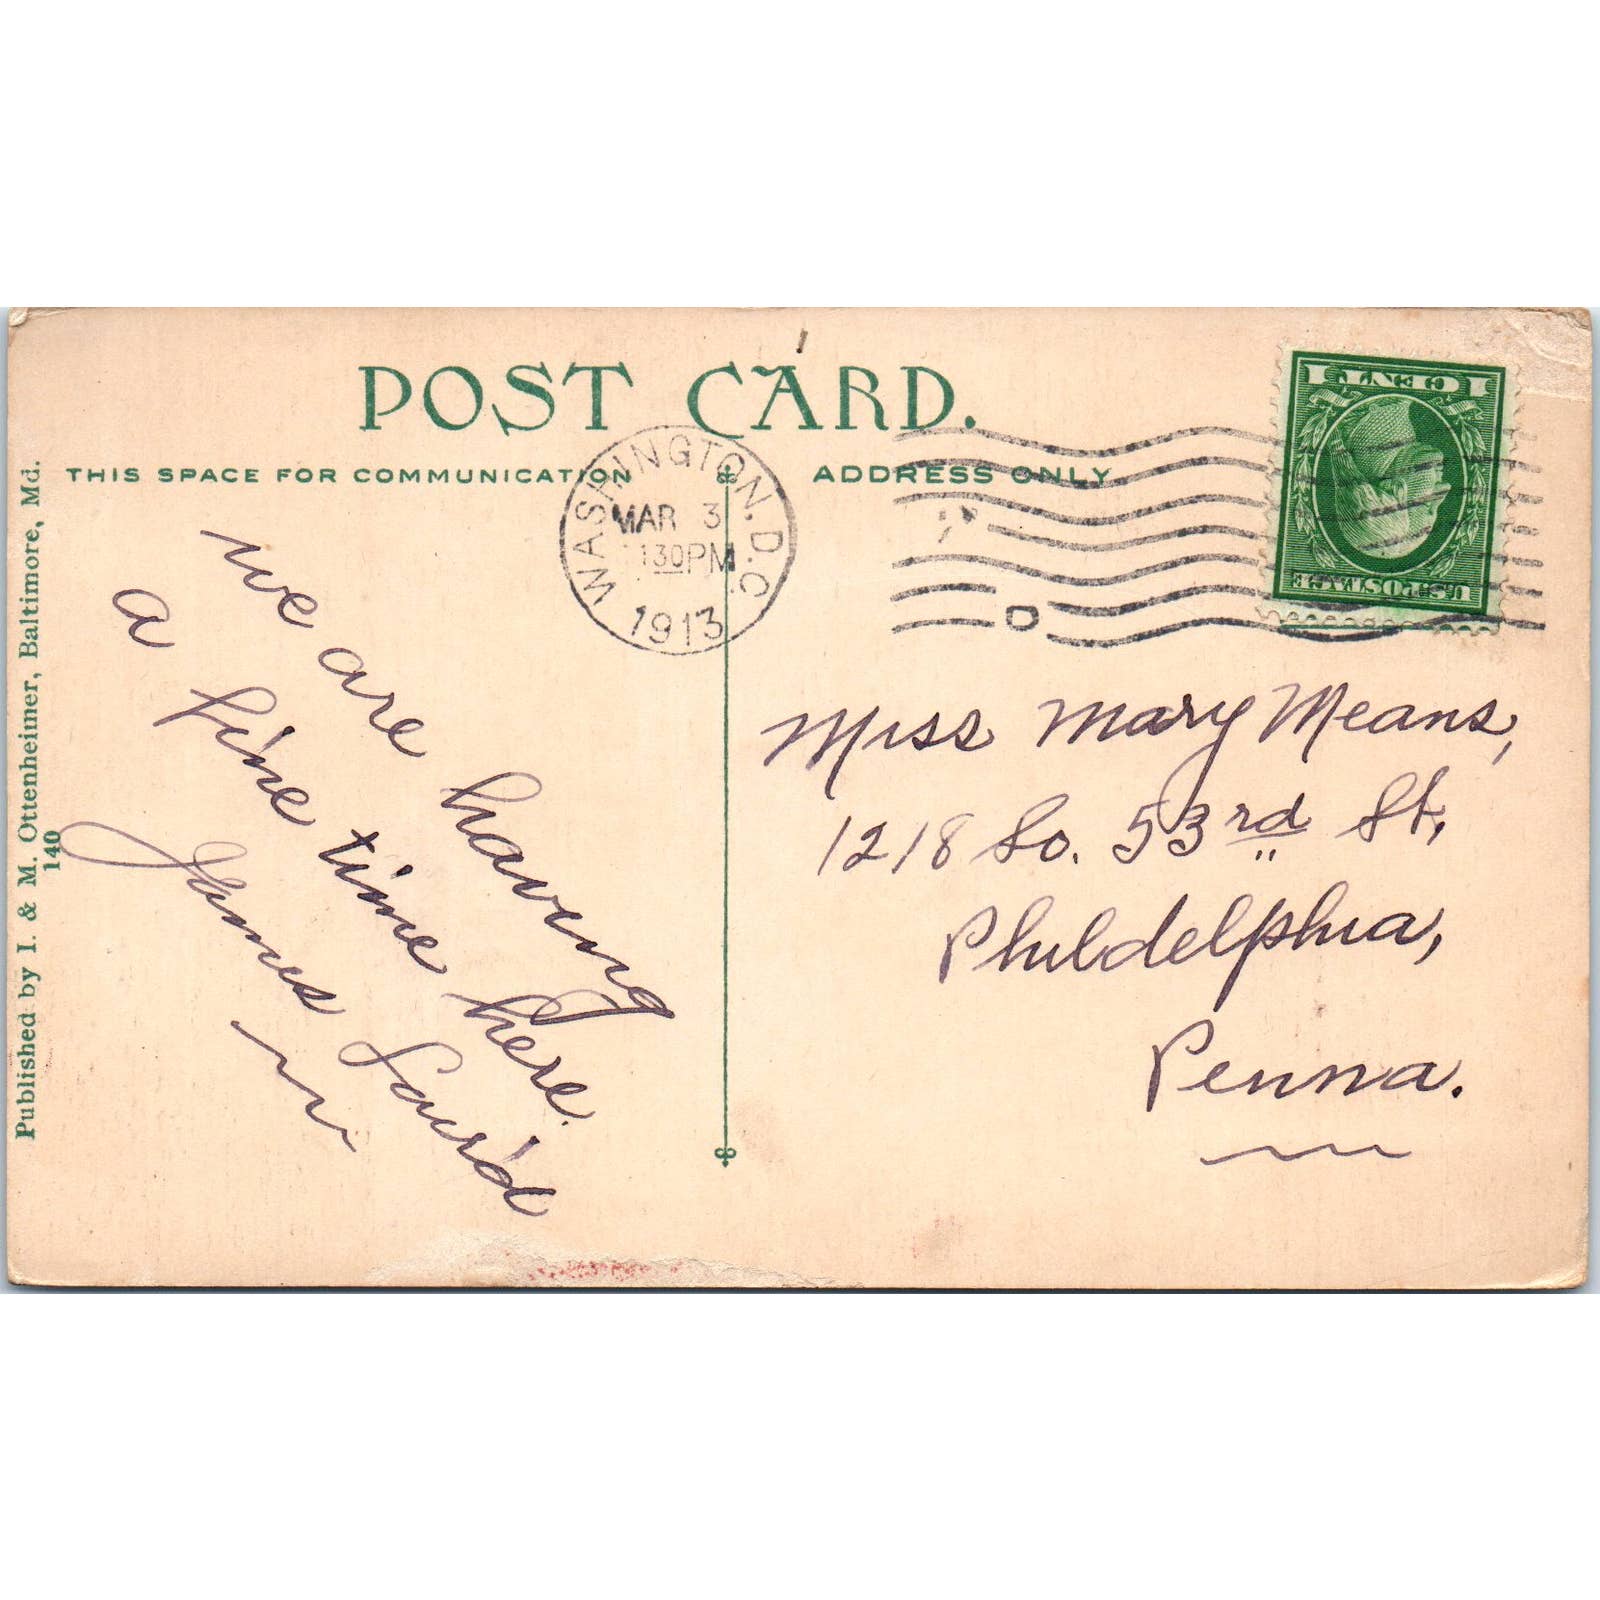 POST CARD.
THIS SPACE FOR COMMUNICATION
ADDRESS ONLY
WASHINGTON. D.C.
MAR 3
130 PM
1913
D
1 CENT 1
U.S. POSTAGE
We are having
a fine time here.
James
Miss Mary Means,
1218 So. 53rd St,
Phildelphia,
Penna.
Published by I. & M. Ottenheimer, Baltimore, Md.
140